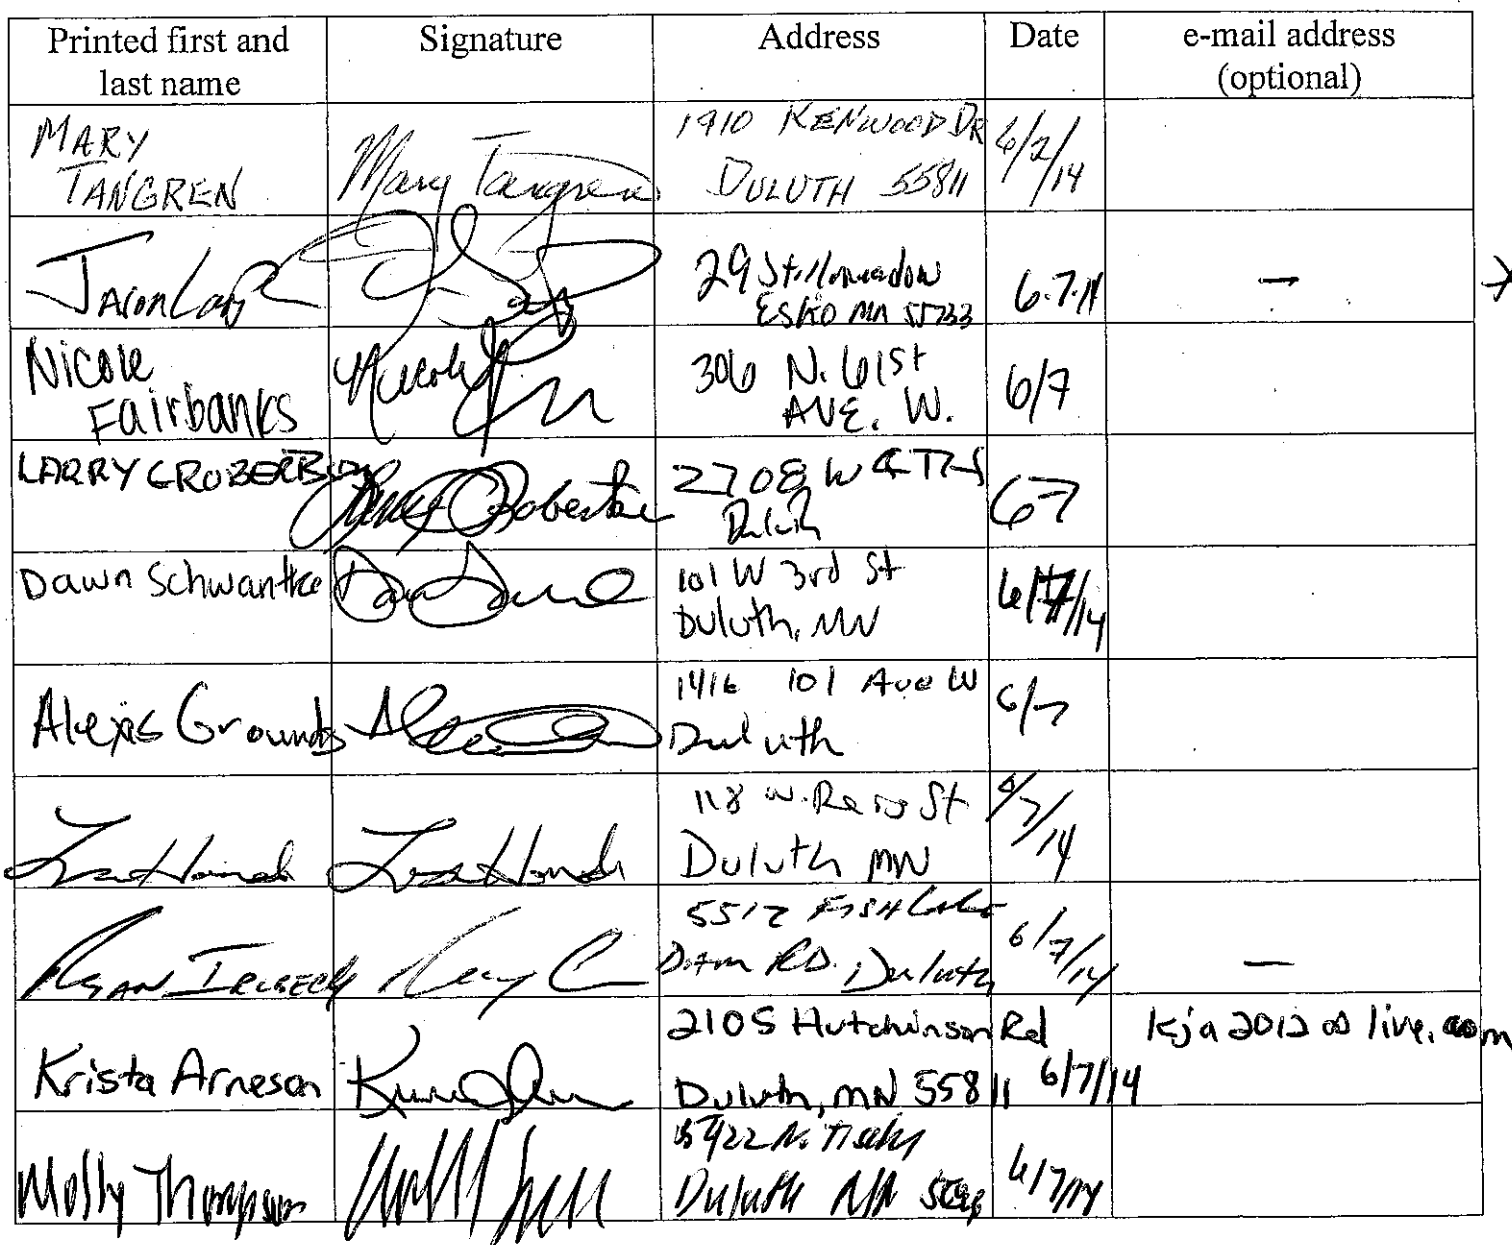 Printed first and last name Signature Address Date e-mail address (optional)
MARY TANGREN Mary Tangren 1910 KENWOOD DR DULUTH 55811 6/2/14
Jason 29 Stillmeadow ESKO MN 55733 6.7.11 —
Nicole Fairbanks Nicole 306 N. 61st AVE. W. 6/7
LARRY C ROBERTSON Larry C Robertson 2708 W Duluth 6-7
Dawn Schwantke 101 W 3rd St Duluth, MN 6/7/14
Alexis Grounds 1416 101 Ave W Duluth 6/7
118 W. St Duluth MN 6/7/14
RYAN 5512 FISH Lake Dam RD. Duluth 6/7/14 —
Krista Arneson 2105 Hutchinson Rd Duluth, MN 55811 6/7/14 kja2012@live.com
Molly Thompson N. Duluth MN 6/7/14